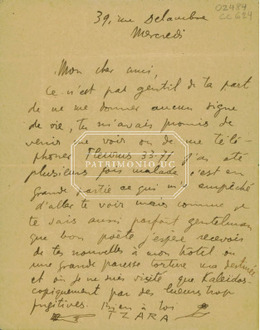 02484
CC 624
39, rue Delambre
Mercredi
Mon cher ami,
Ce n'est pas gentil de ta part
de ne me donner aucun signe
de vie, tu m'avais promis de
venir me voir ou de me télé-
phoner Fleurus 33-77 j'ai été
PATRIMONIO UC
plusieurs fois malade, c'est en
grande partie ce qui m'a empêché
d'aller te voir mais comme je
te sais aussi parfait gentelman
que bon poète j'espère recevoir
de tes nouvelles à mon hôtel où
une grande paresse torture ma
et où je ne suis visité que kaleidos-
copiquement par des lueurs trop
fugitives. Bien à toi
TZARA